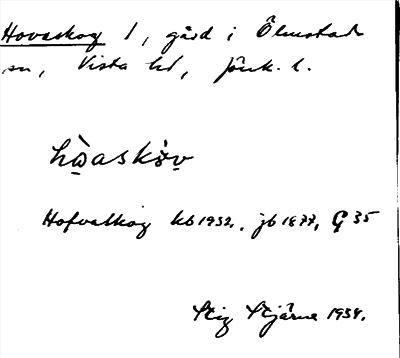 Hovaskog 1, gård i Ölmstad
sn, Vista hd, Jönk. l.
hὼaskǿv
Hofvaskog kb 1932, jb 1877, G 35
Stig Stjärne 1934.